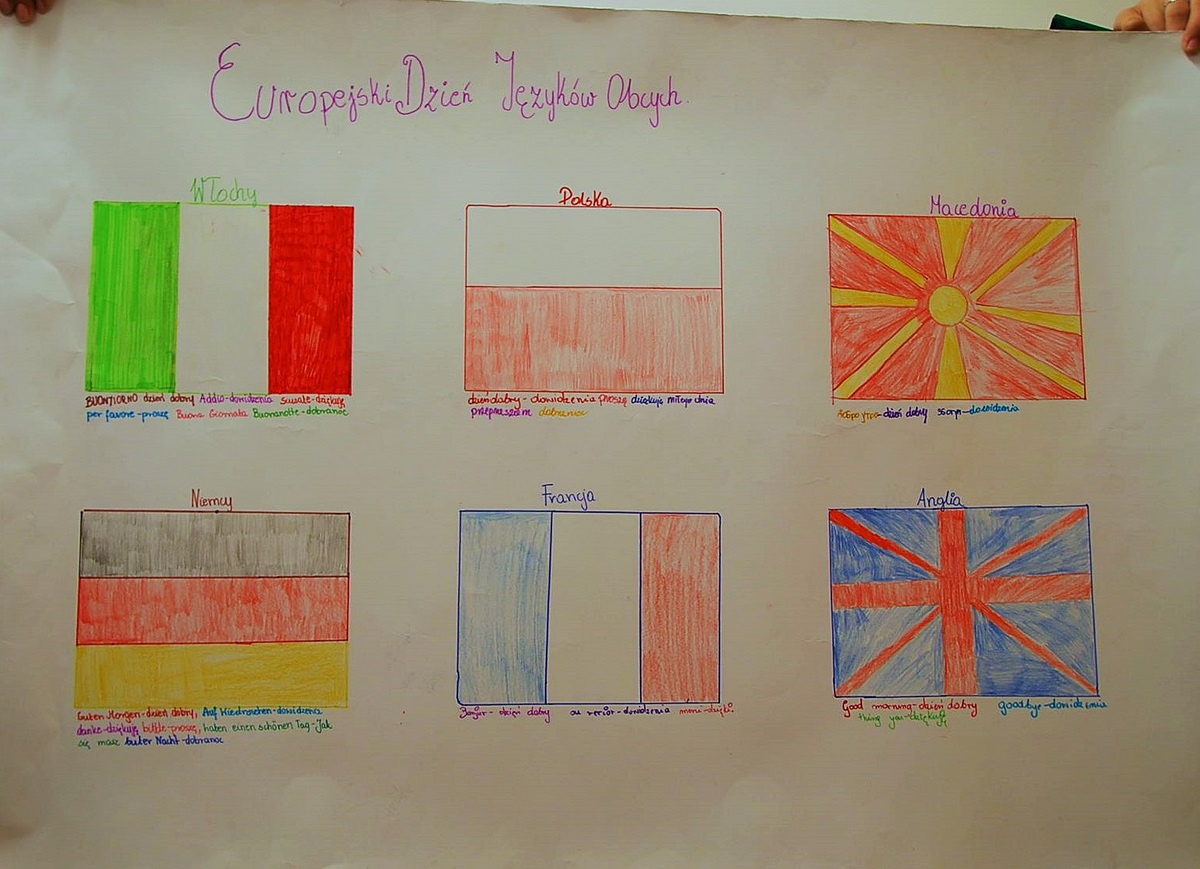 Europejski Dzień Języków Obcych.
Włochy
BUONTIORNO dzień dobry Addio-dowidzenia
per favore-proszę Buona Giornata Buonanotte-dobranoc
Polska
dzień dobry - dowidzenia proszę dziękuję miłego dnia
przepraszam dobranoc
Macedonia
-dzień dobry -dowidzenia
Niemcy
Guten Morgen-dzień dobry, Auf Wiedersehen-dowidzenia
danke-dziękuję, bitte-proszę, haben einen schönen Tag-Jak
się masz Guter Nacht-dobranoc
Francja
- dzień dobry au revior-dowidzenia
Anglia
Good morning-dzień dobry goodbye-dowidzenia
thing you-dziękuję